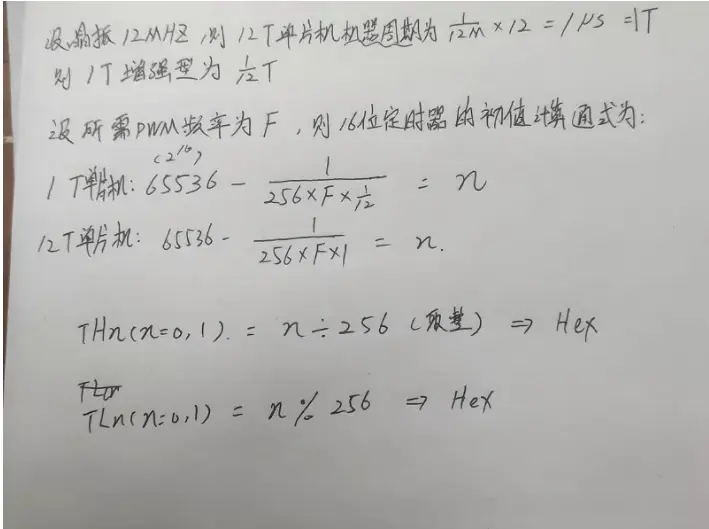 设晶振12MHZ,则12T单片机机器周期为 1/12M × 12 = 1μs = 1T
则1T增强型为 1/12 T
设所需PWM频率为F,则16位定时器的初值计算通式为:
(2^16)
1T单片机: 65536 - 1/(256×F×1/12) = n
12T单片机: 65536 - 1/(256×F×1) = n.
THn(n=0,1). = n÷256 (取整) ⇒ Hex
TLn(n=0,1) = n % 256 ⇒ Hex